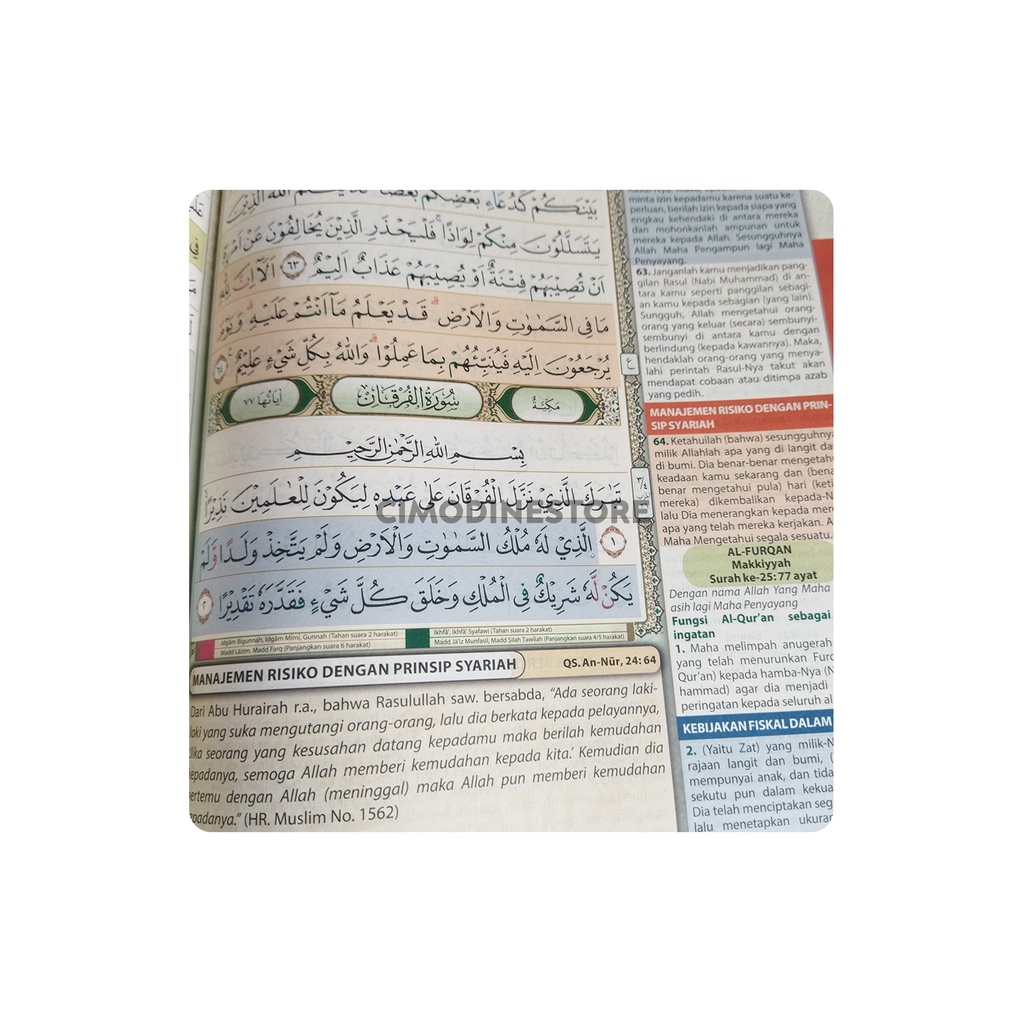 بَيْنَكُمْ كَدُعَاۤءِ بَعْضِكُمْ بَعْضًاۗ قَدْ يَعْلَمُ اللّٰهُ الَّذِيْنَ
يَتَسَلَّلُوْنَ مِنْكُمْ لِوَاذًاۚ فَلْيَحْذَرِ الَّذِيْنَ يُخَالِفُوْنَ عَنْ اَمْرِهٖٓ
اَنْ تُصِيْبَهُمْ فِتْنَةٌ اَوْ يُصِيْبَهُمْ عَذَابٌ اَلِيْمٌ ٦٣ اَلَآ اِنَّ لِلّٰهِ
مَا فِى السَّمٰوٰتِ وَالْاَرْضِۗ قَدْ يَعْلَمُ مَآ اَنْتُمْ عَلَيْهِۗ وَيَوْمَ
يُرْجَعُوْنَ اِلَيْهِ فَيُنَبِّئُهُمْ بِمَا عَمِلُوْاۗ وَاللّٰهُ بِكُلِّ شَيْءٍ عَلِيْمٌ ٦٤
مَكِّيَّةٌ سُوْرَةُ الْفُرْقَانِ اٰيَاتُهَا ٧٧
بِسْمِ اللّٰهِ الرَّحْمٰنِ الرَّحِيْمِ
تَبٰرَكَ الَّذِيْ نَزَّلَ الْفُرْقَانَ عَلٰى عَبْدِهٖ لِيَكُوْنَ لِلْعٰلَمِيْنَ نَذِيْرًا
CIMODINESTORE
١ ۨالَّذِيْ لَهٗ مُلْكُ السَّمٰوٰتِ وَالْاَرْضِ وَلَمْ يَتَّخِذْ وَلَدًا وَّلَمْ
يَكُنْ لَّهٗ شَرِيْكٌ فِى الْمُلْكِ وَخَلَقَ كُلَّ شَيْءٍ فَقَدَّرَهٗ تَقْدِيْرًا ٢
Idgām Bigunnah, Idgām Mimi, Gunnah (Tahan suara 2 harakat)
Madd Lāzim, Madd Farq (Panjangkan suara 6 harakat)
Ikhfā', Ikhfā' Syafawi (Tahan suara 2 harakat)
Madd Jā'iz Munfasil, Madd Silah Tawilah (Panjangkan suara 4/5 harakat)
MANAJEMEN RISIKO DENGAN PRINSIP SYARIAH
QS. An-Nūr, 24: 64
Dari Abu Hurairah r.a., bahwa Rasulullah saw. bersabda, "Ada seorang laki-
laki yang suka mengutangi orang-orang, lalu dia berkata kepada pelayannya,
'Jika seorang yang kesusahan datang kepadamu maka berilah kemudahan
kepadanya, semoga Allah memberi kemudahan kepada kita.' Kemudian dia
bertemu dengan Allah (meninggal) maka Allah pun memberi kemudahan
kepadanya." (HR. Muslim No. 1562)
minta izin kepadamu karena suatu ke-
perluan, berilah izin kepada siapa yang
engkau kehendaki di antara mereka
dan mohonkanlah ampunan untuk
mereka kepada Allah. Sesungguhnya
Allah Maha Pengampun lagi Maha
Penyayang.
63. Janganlah kamu menjadikan pang-
gilan Rasul (Nabi Muhammad) di an-
tara kamu seperti panggilan sebagi-
an kamu kepada sebagian (yang lain).
Sungguh, Allah mengetahui orang-
orang yang keluar (secara) sembunyi-
sembunyi di antara kamu dengan
berlindung (kepada kawannya). Maka,
hendaklah orang-orang yang menya-
lahi perintah Rasul-Nya takut akan
mendapat cobaan atau ditimpa azab
yang pedih.
MANAJEMEN RISIKO DENGAN PRIN-
SIP SYARIAH
64. Ketahuilah (bahwa) sesungguhnya
milik Allahlah apa yang di langit da
di bumi. Dia benar-benar mengetahu
keadaan kamu sekarang dan (bena
benar mengetahui pula) hari (keti
mereka) dikembalikan kepada-N
lalu Dia menerangkan kepada mer
apa yang telah mereka kerjakan. A
Maha Mengetahui segala sesuatu.
AL-FURQAN
Makkiyyah
Surah ke-25: 77 ayat
Dengan nama Allah Yang Maha
asih lagi Maha Penyayang
Fungsi Al-Qur'an sebagai
ingatan
1. Maha melimpah anugerah
yang telah menurunkan Furq
Qur'an) kepada hamba-Nya (N
hammad) agar dia menjadi
peringatan kepada seluruh al
KEBIJAKAN FISKAL DALAM
2. (Yaitu Zat) yang milik-N
rajaan langit dan bumi, (
mempunyai anak, dan tida
sekutu pun dalam kekua
Dia telah menciptakan seg
lalu menetapkan ukuran